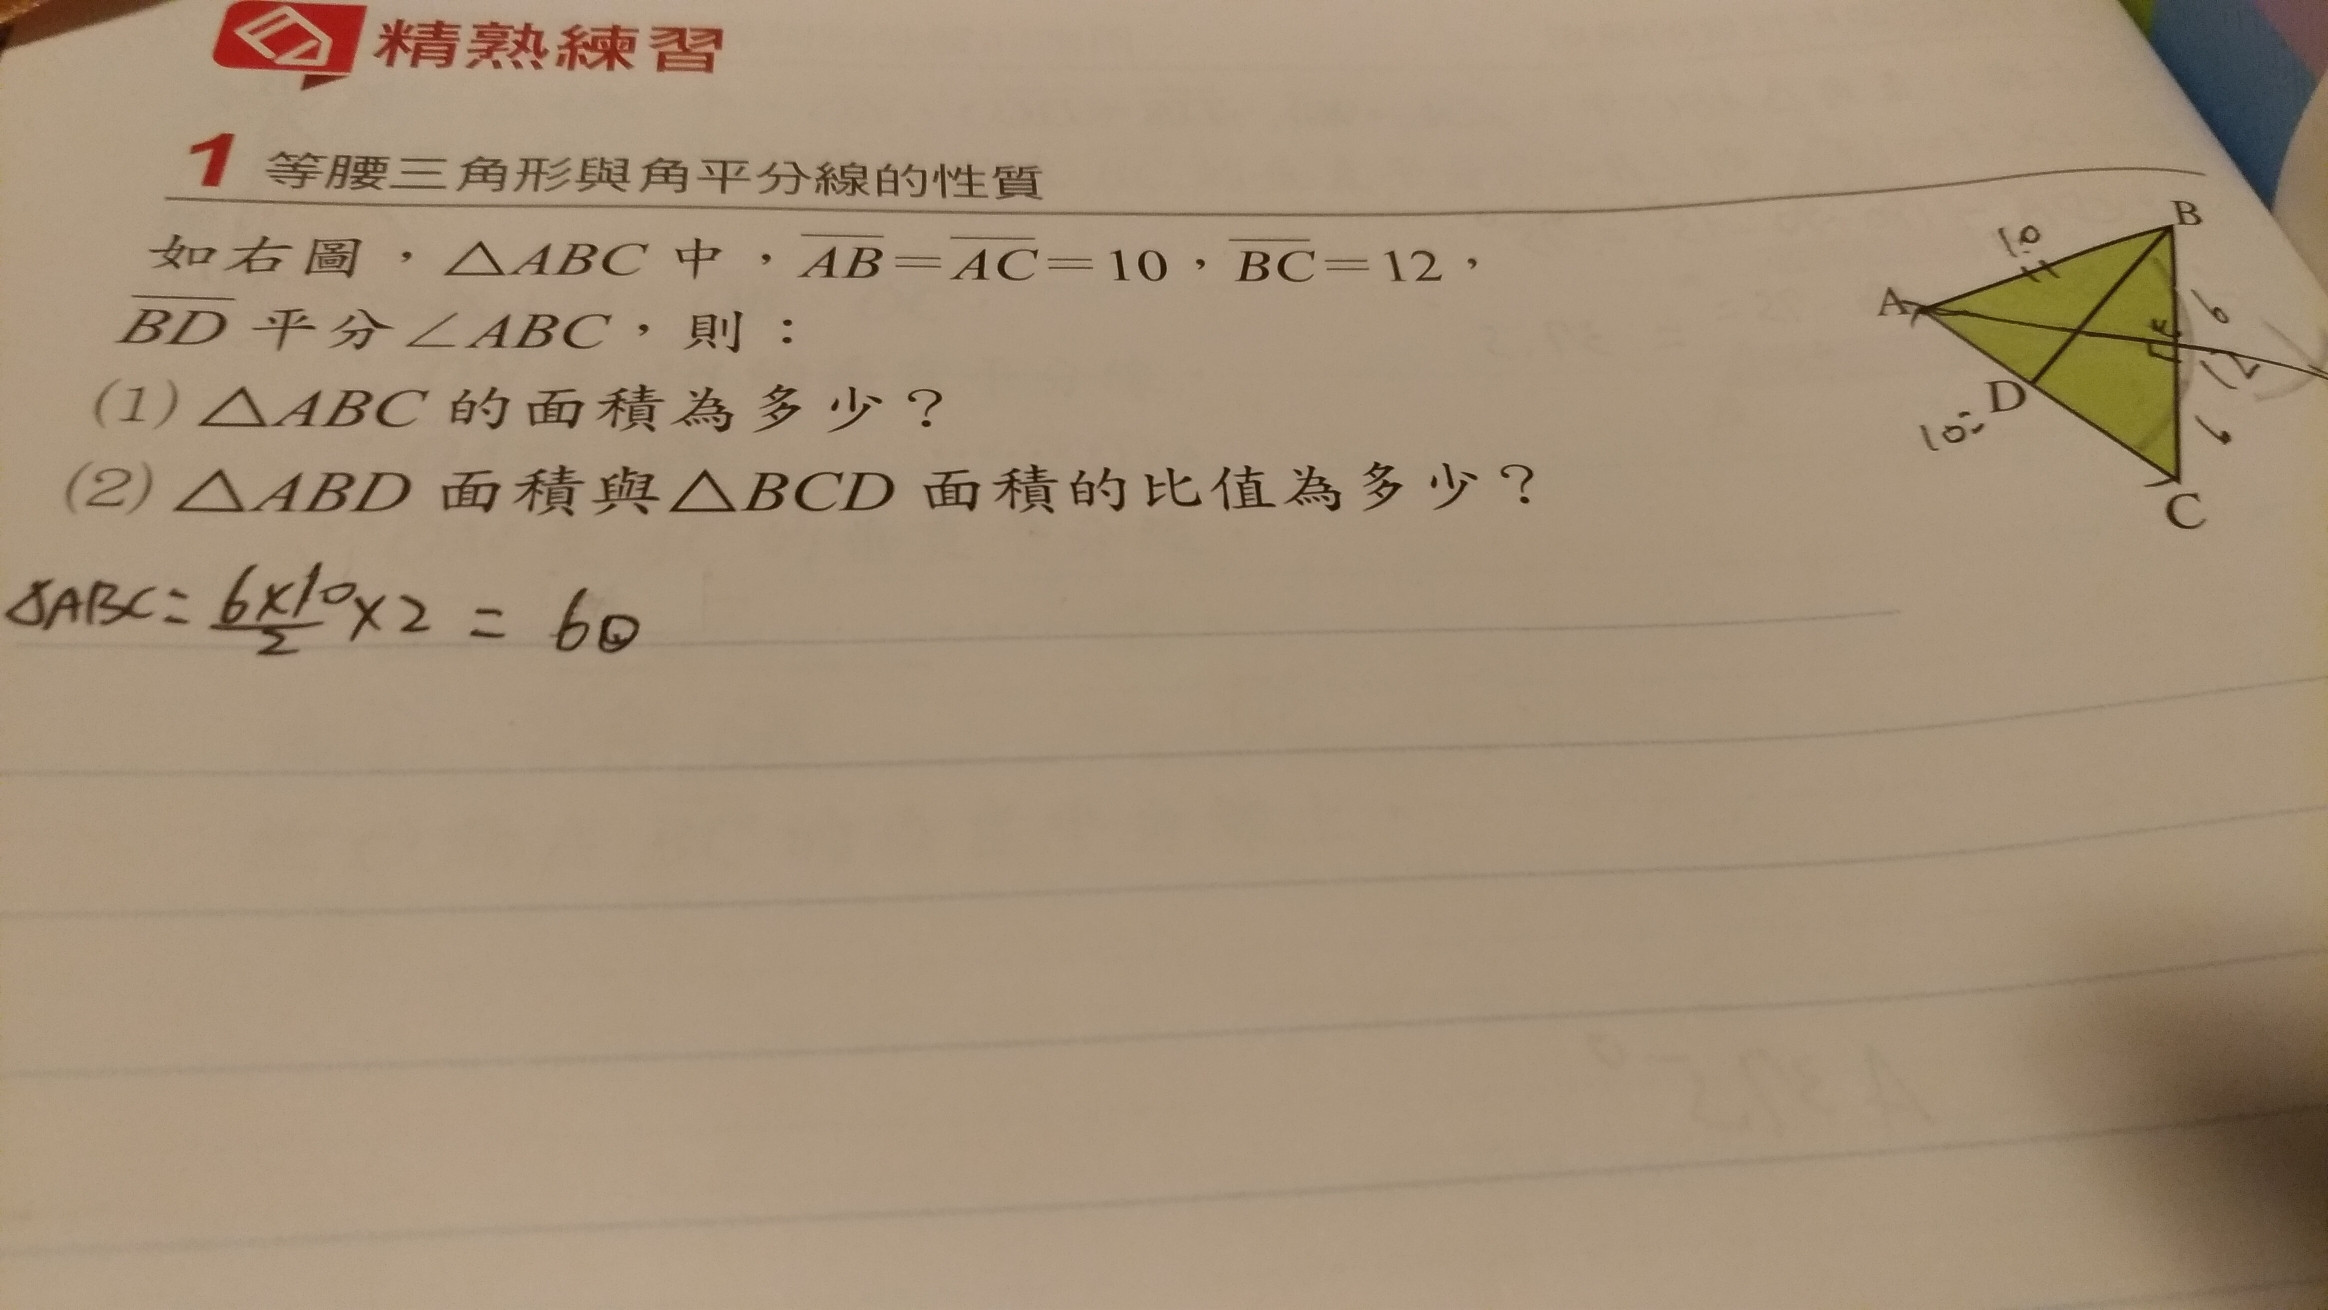 精熟練習
1 等腰三角形與角平分線的性質
如右圖，△ABC 中，AB=AC=10，BC=12，
BD 平分∠ABC，則：
(1) △ABC 的面積為多少？
(2) △ABD 面積與△BCD 面積的比值為多少？
△ABC = 6×10/2 ×2 = 60
B
10
A
6
12
D
10
6
C